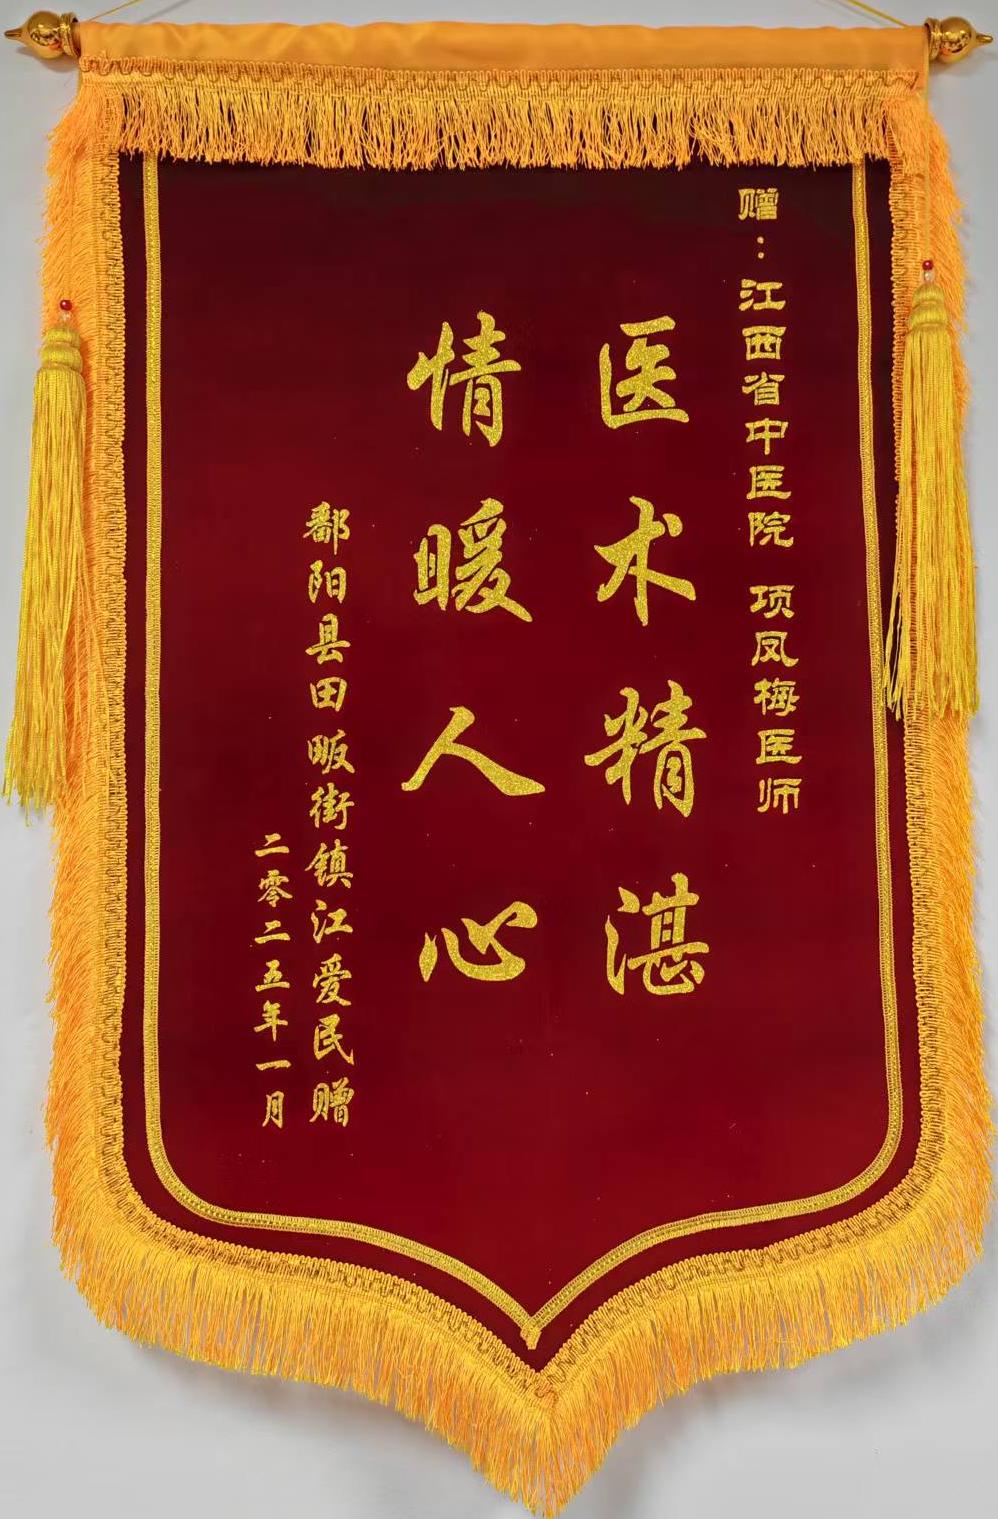 赠：江西省中医院 项凤梅医师
医术精湛
情暖人心
鄱阳县田畈街镇江爱民赠
二零二五年一月